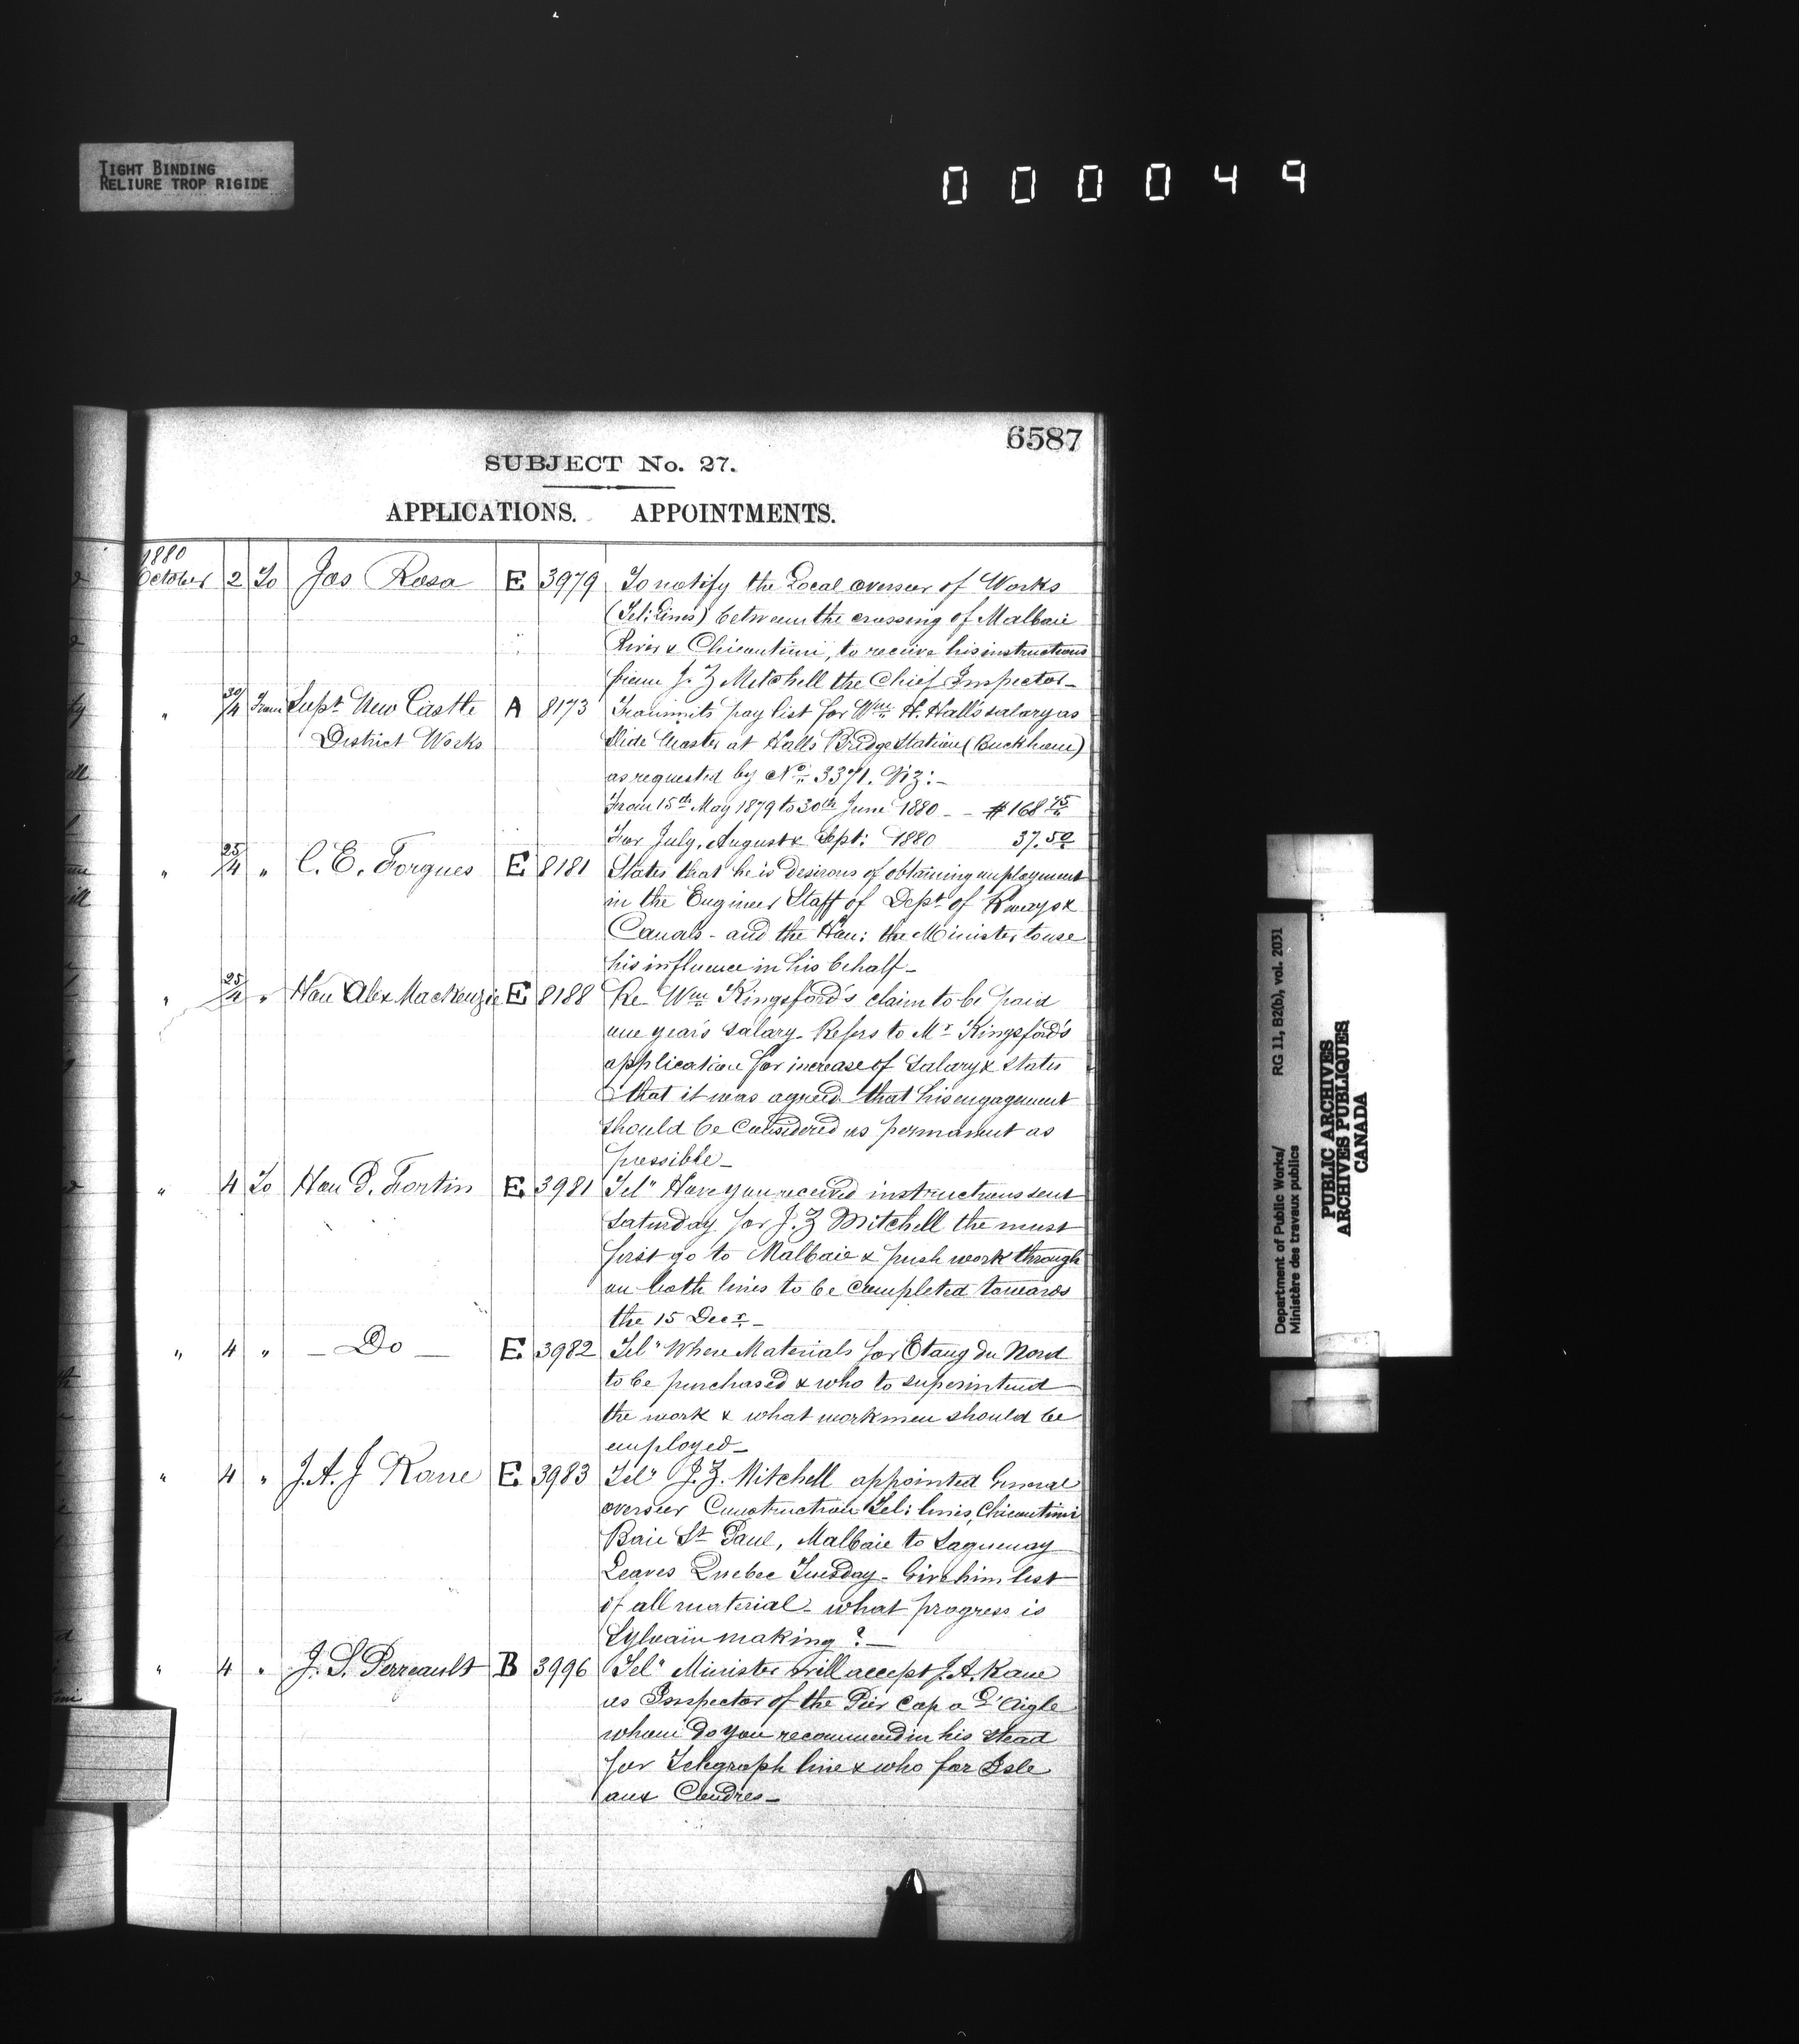 TIGHT BINDING
RELIURE TROP RIGIDE
000049
6587
SUBJECT No. 27.
APPLICATIONS. APPOINTMENTS.
1880
October 2 To Jas Rosa E 3979 To notify the Local overseer of Works
(Tel: Lines) between the crossing of Malbaie
River & Chicoutimi, to receive his instructions
from J. Z Mitchell the Chief Inspector_
" 30/4 From Supt New Castle A 8173 Transmits pay list for Wm H. Hall's salary as
District Works Slide Master at Halls Bridge Station (Buckhorn)
as requested by No 3371. Viz:-
From 15th May 1879 to 30th June 1880 _ _ $168 75
For July, August & Sept: 1880 37.50
" 25/4 " C. E. Forgues E 8181 States that he is desirous of obtaining employment
in the Engineer Staff of Dept of Rways &
Canals - and the Hon: the Minister to use
his influence in his behalf_
" 25/4 " Hon Alex Mackenzie E 8188 Re Wm Kingsford's claim to be paid
one year's salary. Refers to Mr Kingsford's
application for increase of Salary & states
that it was agreed that his engagement
should be considered as permanent as
possible_
" 4 To Hon P. Fortin E 3981 Tel" Have you received instructions sent
Saturday for J. Z Mitchell the must
first go to Malbaie & push work through
on both lines to be completed towards
the 15 Decr_
" 4 " _ Do _ E 3982 Tel" Where Materials for Etang du Nord
to be purchased & who to superintend
the work & what workmen should be
employed_
" 4 " J. A. J Kane E 3983 Tel" J. Z. Mitchell appointed General
overseer Construction Tel: lines, Chicoutimi
Baie St Paul, Malbaie to Saguenay
Leaves Quebec Tuesday - Give him list
of all material - what progress is
Sylvain making ?_
" 4 " J. S. Perreault B 3996 Tel" Minister will accept J. A. Kane
as Inspector of the Pier Cap a L'Aigle
whom do you recommend in his stead
for Telegraph line & who for Isle
aux Coudres_
Department of Public Works/ RG 11, B2(b), vol. 2031
Ministère des travaux publics
PUBLIC ARCHIVES
ARCHIVES PUBLIQUES
CANADA